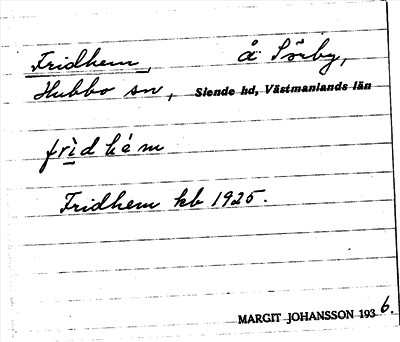 Fridhem, å Sörby,
Hubbo sn, Siende hd, Västmanlands län
frìdhém
Fridhem kb 1925.
MARGIT JOHANSSON 1936.